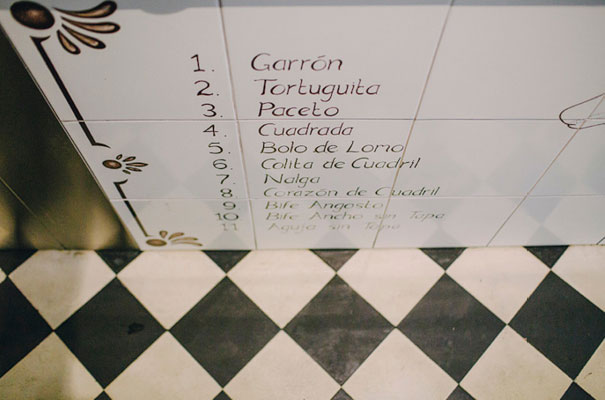 1. Garrón
2. Tortuguita
3. Paceto
4. Cuadrada
5. Bolo de Lomo
6. Colita de Cuadril
7. Nalga
8 Corazón de Cuadril
9 Bife Angosto
10 Bife Ancho sin Tapa
11 Aguja sin Tapa